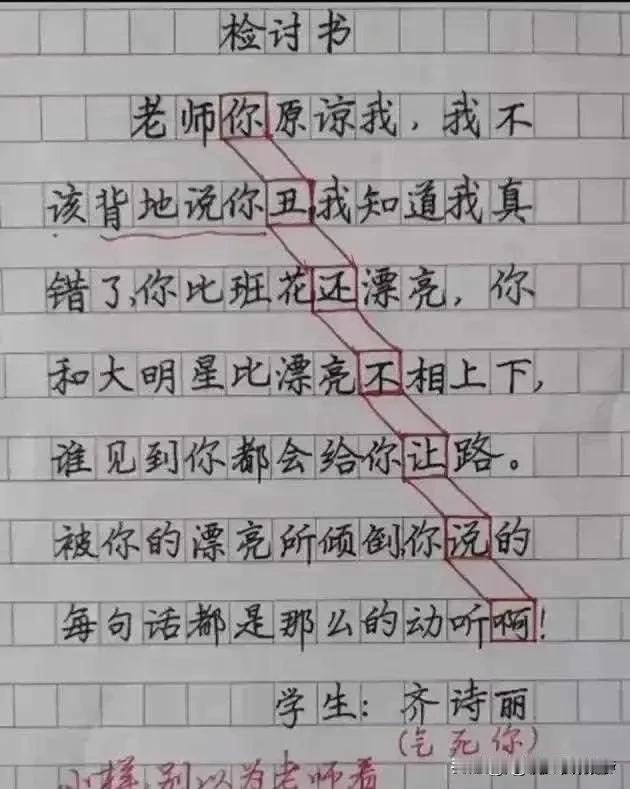 检讨书
老师你原谅我，我不
该背地说你丑,我知道我真
错了,你比班花还漂亮，你
和大明星比漂亮不相上下，
谁见到你都会给你让路。
被你的漂亮所倾倒,你说的
每句话都是那么的动听啊！
学生：齐诗丽
(气死你)
小样,别以为老师看